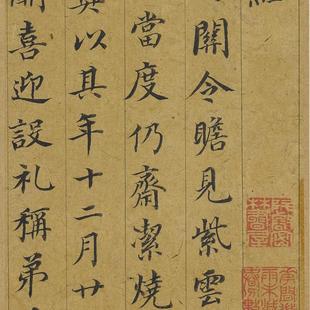 關令瞻見紫雲
當度仍齋潔燒
真以其年十二月廿
關喜迎設礼稱弟